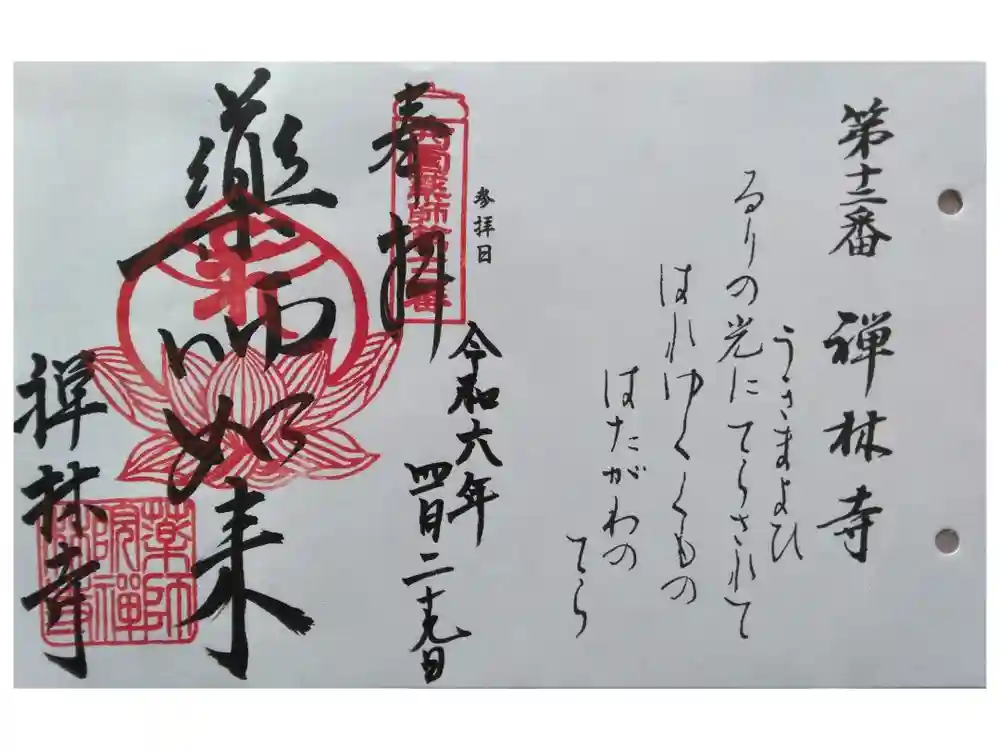 第十二番 禅林寺
うきまよひ
るりの光にてらされて
はれゆくくもの
はたがわの
てら
参拝日
奉拝
西国薬師第十二番
令和六年
四月二十九日
薬師如来
禅林寺
薬師
院禪
林寺